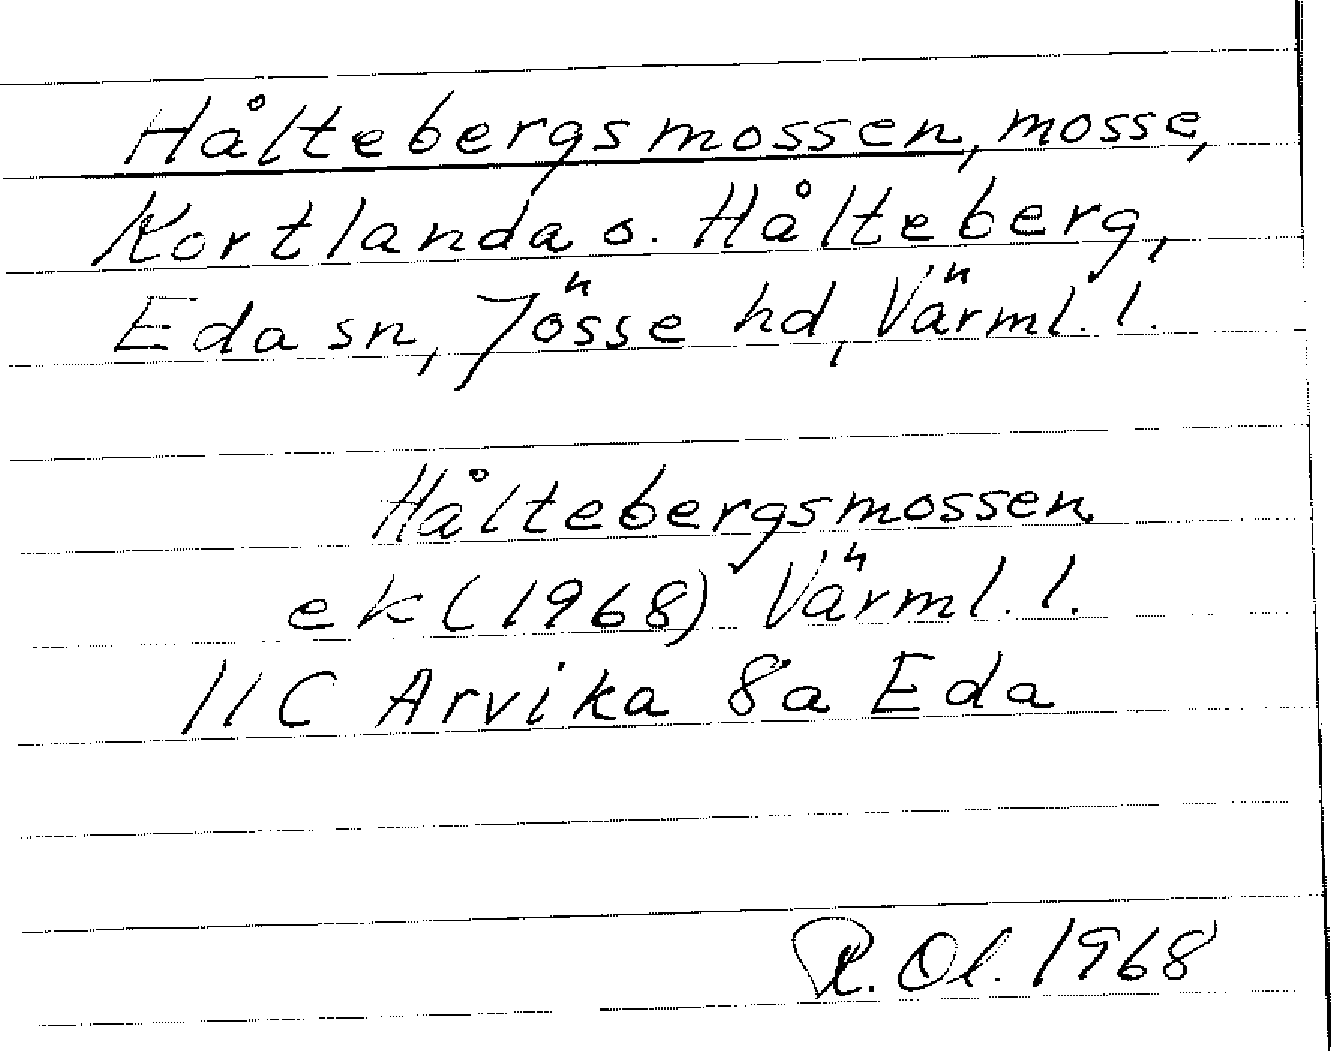 Håltebergsmossen, mosse,
Kortlanda o. Hålteberg,
Eda sn, Jösse hd, Värml. l.
Håltebergsmossen
ek (1968) Värml. l.
11C Arvika 8a Eda
R. Ol. 1968